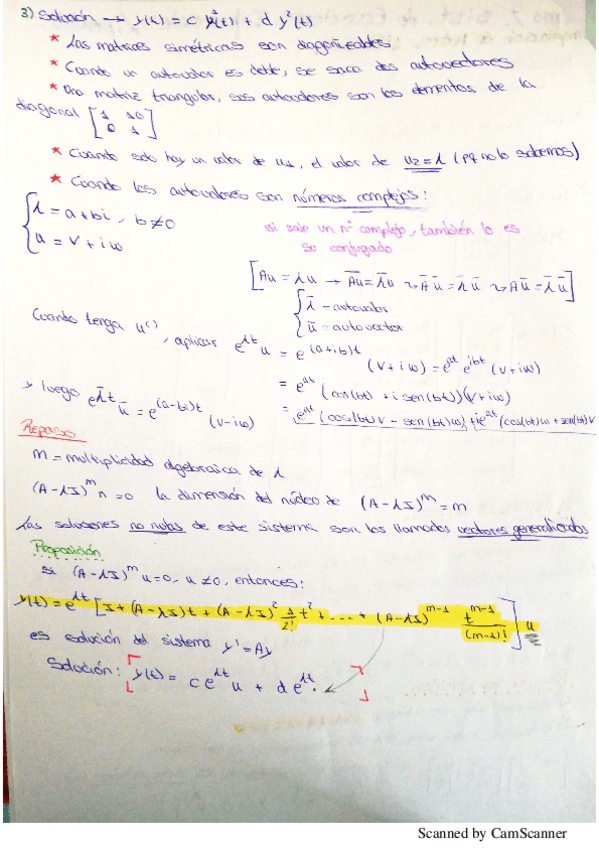 3) Solución → y(t) = c y¹(t) + d y²(t)
* Las matrices simétricas son diagonizables
* Cuando un autovalor es doble, se saca dos autovectores
* Una matriz triangular, sus autovalores son los elementos de la
diagonal [1 10
0 1]
* Cuando solo hay un valor de u1, el valor de u2 = 1 (pq no lo sabemos)
* Cuando los autovalores son números complejos:
{ λ = a + bi, b ≠ 0
u = v + iw
si sale un nº complejo, también lo es
su conjugado
[Au = λu → A̅u̅ = λ̅u̅ ⤳ A̅ u̅ = λ̅ u̅ ⤳ A u̅ = λ̅ u̅]
{ λ̅ - autovalor
u̅ = autovector
Cuando tenga u⁽⁾, aplicar e^{λt} u = e^{(a+ib)t} (v + iw) = e^{at} e^{ibt} (v + iw)
= e^{at} (cos(bt) + i sen(bt))(v + iw)
y luego e^{λ̅t} u̅ = e^{(a-bi)t} (v - iw)
= e^{at} (cos(bt)v - sen(bt)w) + ie^{at} (cos(bt)w + sen(bt)v
Repaso
m = multiplicidad algebraica de λ
(A - λI)^m n = 0 la dimensión del núcleo de (A - λI)^m = m
Las soluciones no nulas de este sistema son los llamados vectores generalizados
Proposición
si (A - λI)^m u = 0, u ≠ 0, entonces:
y(t) = e^{λt} [I + (A - λI)t + (A - λI)² 1/2! t² + ... + (A - λI)^{m-1} t^{m-1}/(m-1)!] u
es solución del sistema y' = Ay
Solución: [y(t) = c e^{λt} u + d e^{λt} · ]
Scanned by CamScanner